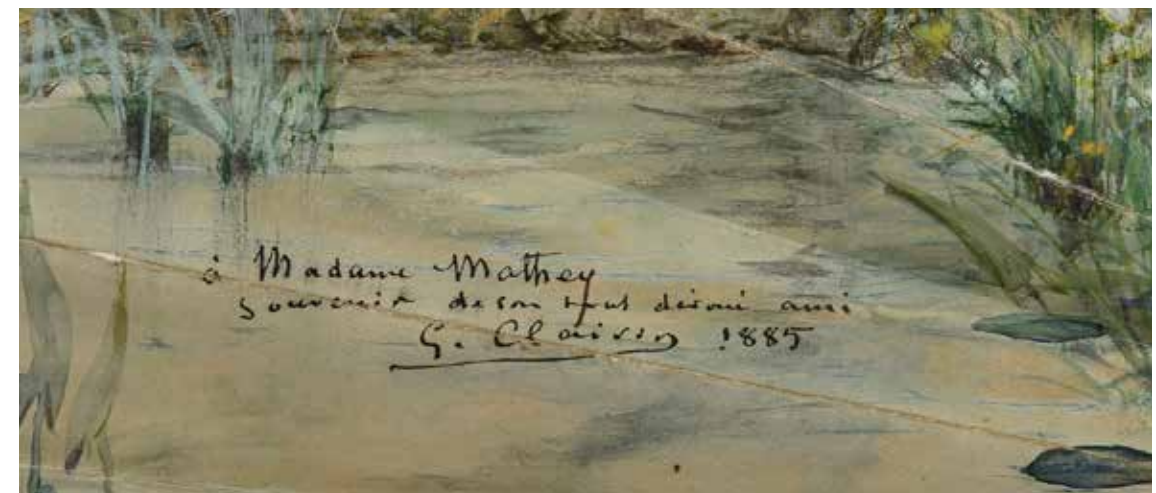 à Madame Mathey
souvenir de son tout dévoué ami
G. Clairin 1885